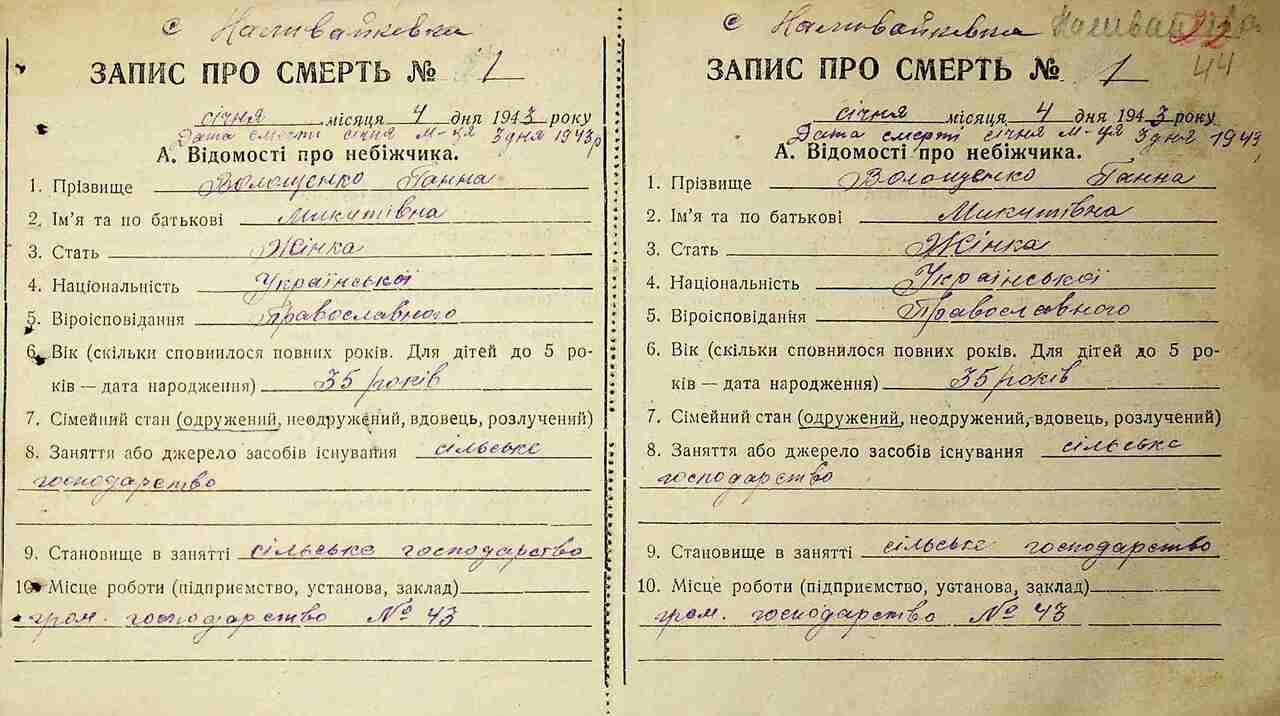 с Наливайковка
ЗАПИС ПРО СМЕРТЬ № 1
січня місяця 4 дня 1943 року
Дата смерти січня м-ця 3 дня 1943 р
А. Відомості про небіжчика.
1. Прізвище Волощенко Ганна
2. Ім'я та по батькові Микитівна
3. Стать Жінка
4. Національність Української
5. Віроісповідання Православного
6. Вік (скільки сповнилося повних років. Для дітей до 5 ро-
ків — дата народження) 35 років
7. Сімейний стан (одружений, неодружений, вдовець, розлучений)
8. Заняття або джерело засобів існування сільське
господарство
9. Становище в занятті сільське господарство
10. Місце роботи (підприємство, установа, заклад)
гром. господарство № 43
с Наливайковка
44
ЗАПИС ПРО СМЕРТЬ № 1
січня місяця 4 дня 1943 року
Дата смерті січня м-ця 3 дня 1943
А. Відомості про небіжчика.
1. Прізвище Волощенко Ганна
2. Ім'я та по батькові Микитівна
3. Стать Жінка
4. Національність Української
5. Віроісповідання Православного
6. Вік (скільки сповнилося повних років. Для дітей до 5 ро-
ків — дата народження) 35 років
7. Сімейний стан (одружений, неодружений, вдовець, розлучений)
8. Заняття або джерело засобів існування сільське
господарство
9. Становище в занятті сільське господарство
10. Місце роботи (підприємство, установа, заклад)
гром. господарство № 43